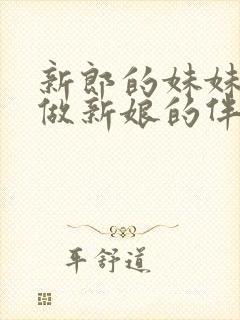 新郎的妹妹
做新娘的伴
平舒道